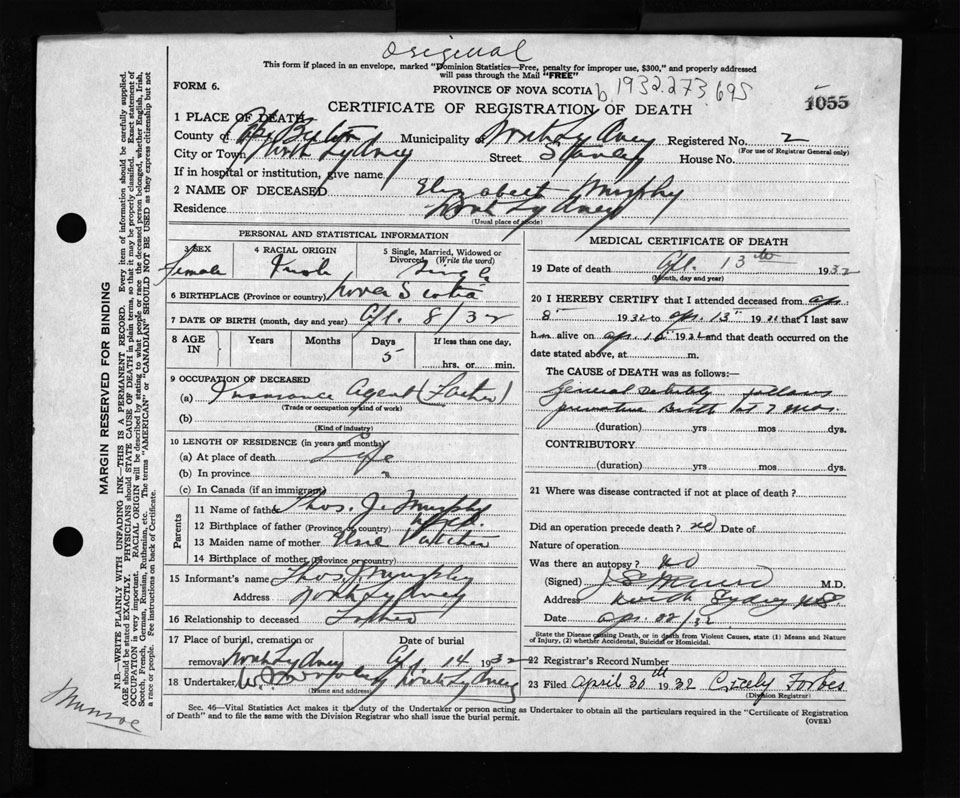 Original
This form if placed in an envelope, marked "Dominion Statistics—Free, penalty for improper use, $300," and properly addressed
will pass through the Mail "FREE"
FORM 6.
PROVINCE OF NOVA SCOTIA
b.1932.273.695
1055
CERTIFICATE OF REGISTRATION OF DEATH
1 PLACE OF DEATH
County of Cape Breton Municipality of North Sydney Registered No. 2
(For use of Registrar General only)
City or Town North Sydney Street Stanley House No.
If in hospital or institution, give name
2 NAME OF DECEASED Elizabeth Murphy
Residence North Sydney
(Usual place of abode)
PERSONAL AND STATISTICAL INFORMATION
3 SEX Female
4 RACIAL ORIGIN Irish
5 Single, Married, Widowed or Divorced (Write the word) Single
6 BIRTHPLACE (Province or country) Nova Scotia
7 DATE OF BIRTH (month, day and year) Apl. 8/32
8 AGE IN Years Months Days 5 If less than one day,
hrs. or min.
9 OCCUPATION OF DECEASED
(a) Insurance Agent (Father)
(Trade or occupation or kind of work)
(b)
(Kind of industry)
10 LENGTH OF RESIDENCE (in years and months)
(a) At place of death Life
(b) In province "
(c) In Canada (if an immigrant)
Parents
11 Name of father Thos. J. Murphy
12 Birthplace of father (Province or country) Nfld.
13 Maiden name of mother
14 Birthplace of mother (Province or country)
15 Informant's name Thos. J. Murphy
Address North Sydney
16 Relationship to deceased Father
17 Place of burial, cremation or Date of burial
removal North Sydney Apl 14 1932
18 Undertaker North Sydney
(Name and address)
MEDICAL CERTIFICATE OF DEATH
19 Date of death Apl. 13th 1932
(Month, day and year)
20 I HEREBY CERTIFY that I attended deceased from ap.
8" 1932 to ap. 13" 19 that I last saw
h alive on ap. 19 and that death occurred on the
date stated above, at m.
The CAUSE of DEATH was as follows:—
General debility follows
premature Birth at 7 mos.
(duration) yrs mos dys.
CONTRIBUTORY
(duration) yrs mos dys.
21 Where was disease contracted if not at place of death?
Did an operation precede death? no Date of
Nature of operation
Was there an autopsy? no
(Signed) J.S. Munro M.D.
Address North Sydney N.S.
Date ap. 22/32
State the Disease causing Death, or in death from Violent Causes, state (1) Means and Nature of Injury, (2) whether Accidental, Suicidal or Homicidal.
22 Registrar's Record Number
23 Filed April 30th 1932 Cicely Forbes
(Division Registrar)
Sec. 46—Vital Statistics Act makes it the duty of the Undertaker or person acting as Undertaker to obtain all the particulars required in the "Certificate of Registration
of Death" and to file the same with the Division Registrar who shall issue the burial permit.
(OVER)
MARGIN RESERVED FOR BINDING
N.B.—WRITE PLAINLY WITH UNFADING INK—THIS IS A PERMANENT RECORD. Every item of information should be carefully supplied.
AGE should be stated EXACTLY. PHYSICIANS should STATE CAUSE OF DEATH in plain terms, so that it may be properly classified. Exact statement of
OCCUPATION is very important. RACIAL ORIGIN will be described by stating to what people or race the deceased person belonged, whether English, Irish,
Scotch, French, German, Russian, Ruthenian, etc. The terms "AMERICAN" or "CANADIAN" SHOULD NOT BE USED as they express citizenship but not
a race or people. Fee instructions on back of Certificate.
Munroe